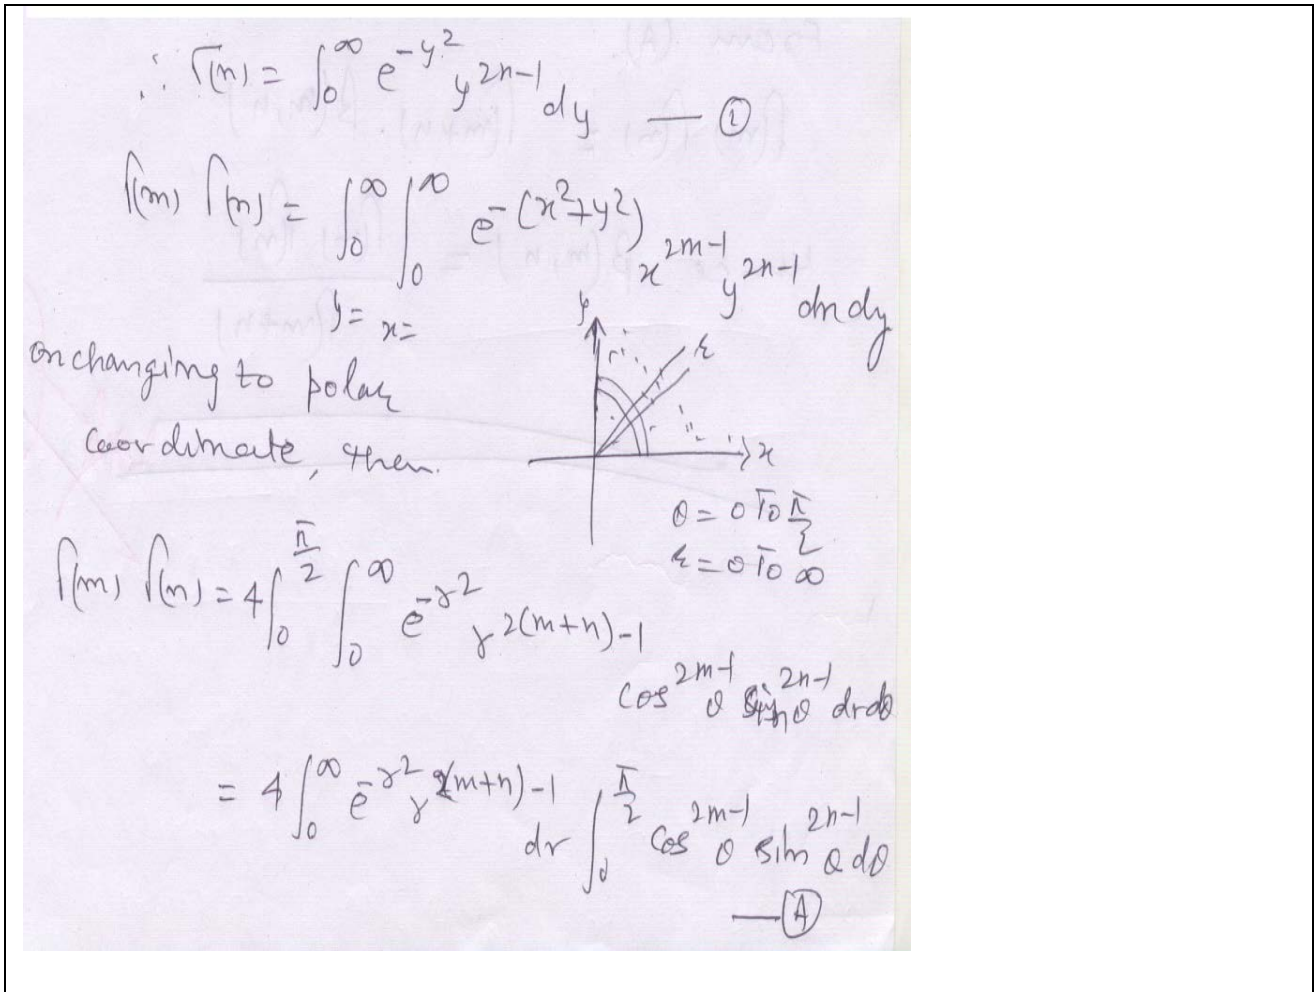 ∴ Γ(n) = ∫₀^∞ e^{-y²} y^{2n-1} dy — ①
Γ(m) Γ(n) = ∫₀^∞ ∫₀^∞ e^{-(x²+y²)} x^{2m-1} y^{2n-1} dx dy
y= x=
y
r
on changing to polar
coordinate, then.
x
θ = 0 To π/2
r = 0 To ∞
Γ(m) Γ(n) = 4 ∫₀^{π/2} ∫₀^∞ e^{-r²} r^{2(m+n)-1}
cos^{2m-1} θ sin^{2n-1} θ dr dθ
= 4 ∫₀^∞ e^{-r²} r^{2(m+n)-1} dr ∫₀^{π/2} cos^{2m-1} θ sin^{2n-1} θ dθ
— Ⓐ